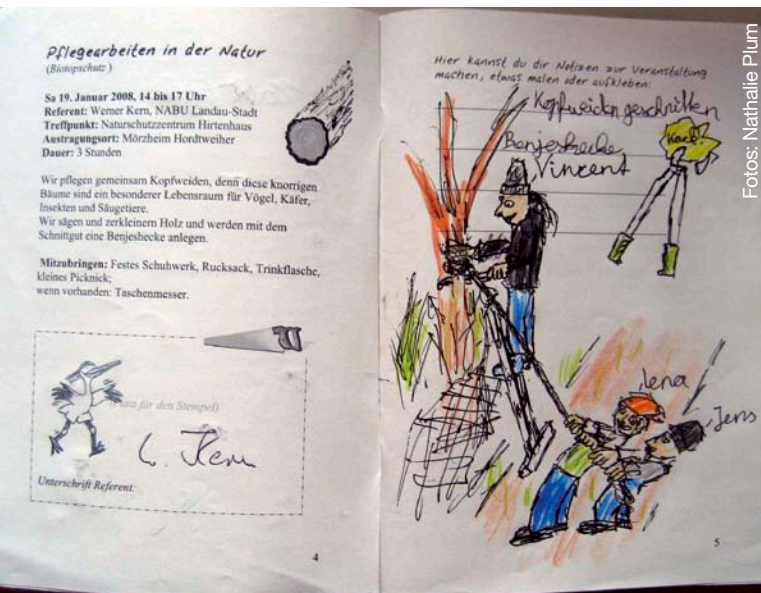 Pflegearbeiten in der Natur
(Biotopschutz)
Sa 19. Januar 2008, 14 bis 17 Uhr
Referent: Werner Kern, NABU Landau-Stadt
Treffpunkt: Naturschutzzentrum Hirtenhaus
Austragungsort: Mörzheim Hordtweiher
Dauer: 3 Stunden
Wir pflegen gemeinsam Kopfweiden, denn diese knorrigen
Bäume sind ein besonderer Lebensraum für Vögel, Käfer,
Insekten und Säugetiere.
Wir sägen und zerkleinern Holz und werden mit dem
Schnittgut eine Benjeshecke anlegen.
Mitzubringen: Festes Schuhwerk, Rucksack, Trinkflasche,
kleines Picknick;
wenn vorhanden: Taschenmesser.
(Platz für den Stempel)
Kern
Unterschrift Referent:
4
Hier kannst du dir Notizen zur Veranstaltung
machen, etwas malen oder aufkleben:
Kopfweiden geschnitten
Benjeshecke
Knack!
Vincent
Lena
Jens
5
Fotos: Nathalie Plum